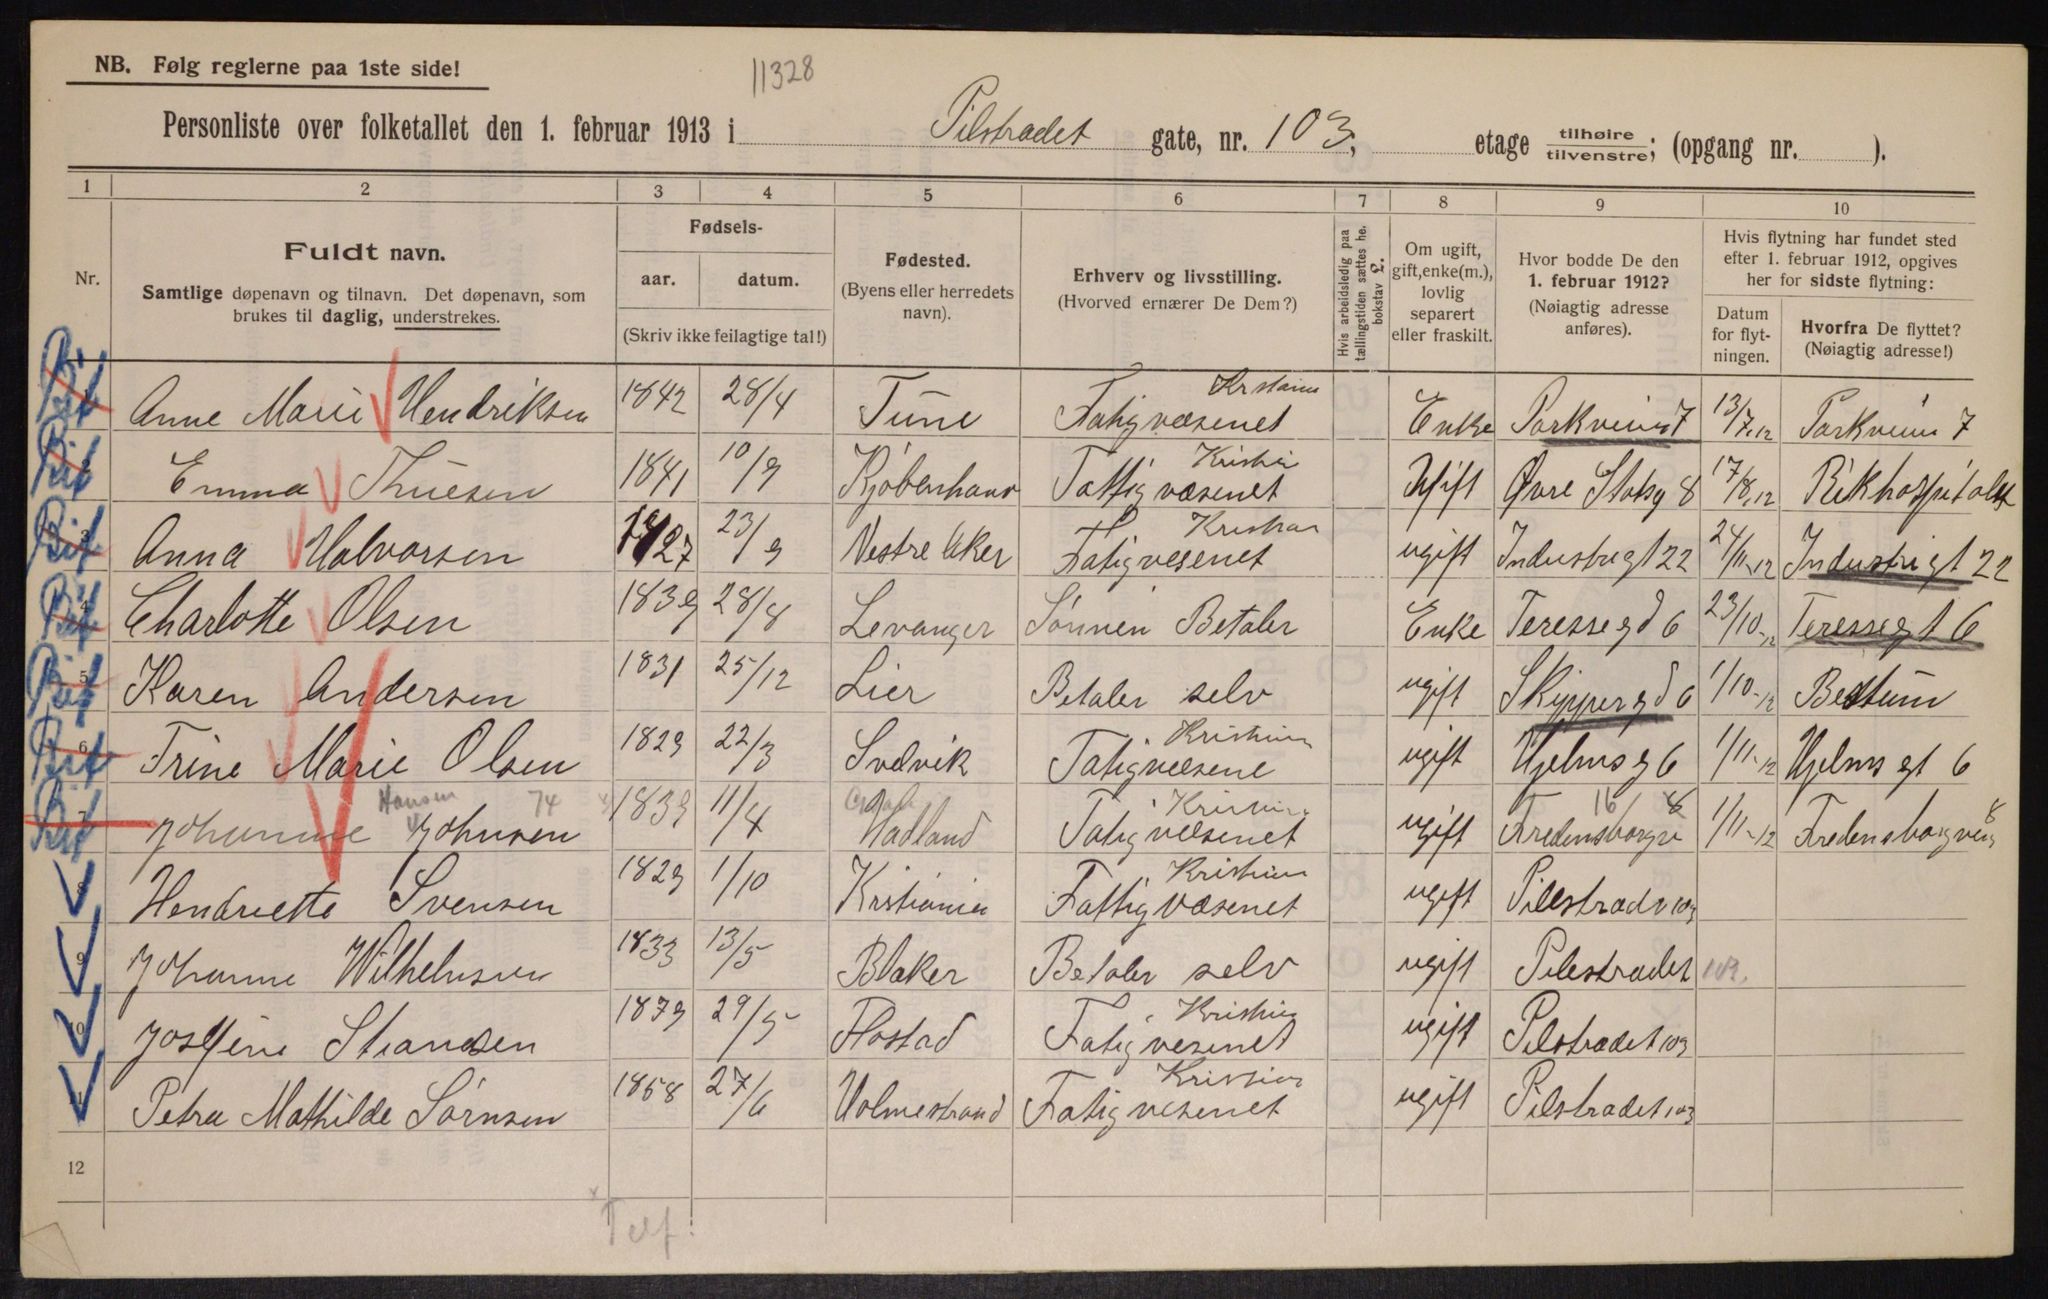 NB. Følg reglerne paa 1ste side!
11328
Personliste over folketallet den 1. februar 1913 i Pilstradet gate, nr. 103, etage tilhøire tilvenstre; (opgang nr. ).
1 2 3 4 5 6 7 8 9 10
Nr.
Fuldt navn.
Samtlige døpenavn og tilnavn. Det døpenavn, som
brukes til daglig, understrekes.
Fødsels-
aar. datum.
(Skriv ikke feilagtige tal!)
Fødested.
(Byens eller herredets
navn).
Erhverv og livsstilling.
(Hvorved ernærer De Dem?)
Hvis arbeidsledig paa
tællingstiden sættes he.
bokstav L.
Om ugift,
gift,enke(m.),
lovlig
separert
eller fraskilt.
Hvor bodde De den
1. februar 1912?
(Nøiagtig adresse
anføres).
Hvis flytning har fundet sted
efter 1. februar 1912, opgives
her for sidste flytning:
Datum
for flyt-
ningen.
Hvorfra De flyttet?
(Nøiagtig adresse!)
Anne Marie Hendriksen 1842 28/4 Tune Fatigvæsenet Enke Parkveien 7 13/7.12 Parkveien 7
2 Emma Thuesen 1841 10/9 Kjøbenhavn Fattigvæsenet Ugift Øvre Slotsg 8 17/8.12 Rikhospitalet
3 Anna Halvorsen 1827 23/9 Vestre Aker Fatigvesenet ugift Industrigt 22 24/11-12 Industrigt 22
4 Charlotte Olsen 1839 28/8 Levanger Sønnen Betaler Enke Teressegd 6 23/10-12 Teressegt 6
5 Karen Andersen 1831 25/12 Lier Betaler selv ugift Skippergd 6 1/10-12 Bestum
6 Trine Marie Olsen 1829 22/3 Svelvik Fatigvæsene ugift Hjelmsg 6 1/11-12 Hjelmsgt 6
Hansen 74 16/8
7 Johanne Johnsen 1839 11/4 Hadland Fatigvæsenet ugift Fredensborgv 1/11-12 Fredensborgvei 8
Henriette Svensen 1829 1/10 Kristiania Fattigvæsenet ugift Pilestradv 103
9 Johanne Wilhelmsen 1833 13/5 Blaker Betaler selv ugift Pilestradet 103.
Josefine Strandsen 1879 29/5 Flostad Fatigvesenet ugift Pilstradet 103
Petra Mathilde Sørnsen 1858 27/6 Holmestrand Fatigvesenet ugift Pilstradet 103
12
Telf.